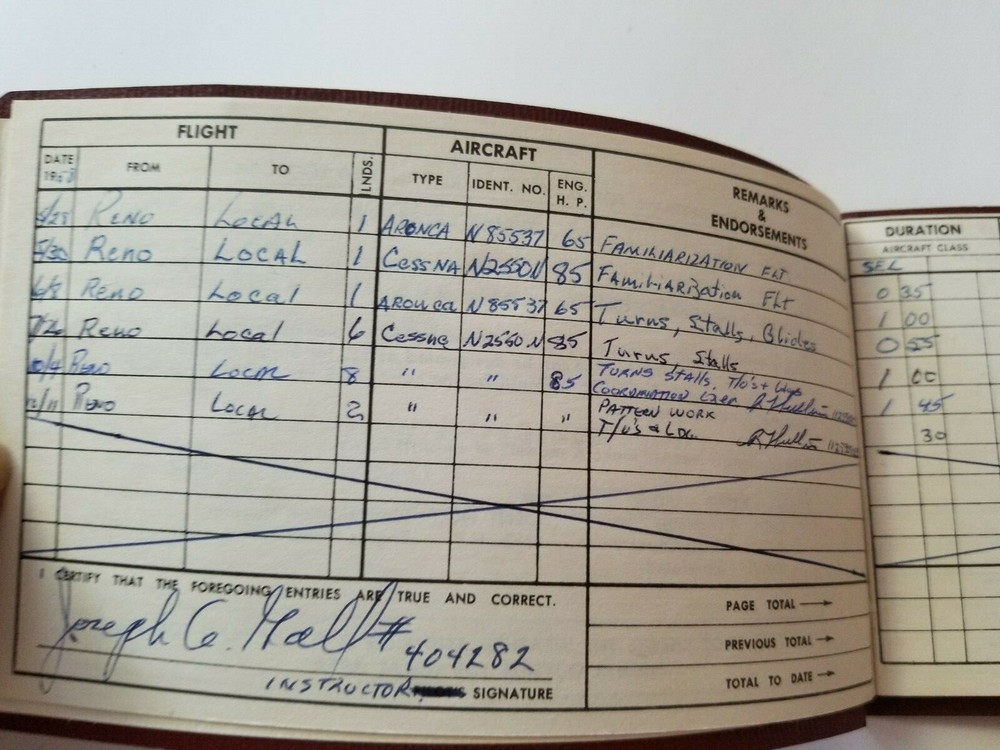 FLIGHT AIRCRAFT REMARKS & ENDORSEMENTS DURATION
DATE 19 FROM TO LNDS. TYPE IDENT. NO. ENG. H. P. AIRCRAFT CLASS
SEL
5/28 RENO LOCAL 1 ARONCA N85537 65 FAMILIARIZATION FLT 0 35
5/30 Reno LOCAL 1 Cessna N2550N 85 Familiarization Flt 1 00
6/8 Reno Local 1 Aronca N85537 65 Turns, Stalls, Glides 0 55
Reno Local 6 Cessna N2550N 85 Turns, Stalls 1 00
10/4 Reno LOCAL 8 " " 85 TURNS STALLS, T/O's + 1 45
COORDINATION
Reno LOCAL 2 " " " PATTERN WORK 30
T/O's & LDG.
I CERTIFY THAT THE FOREGOING ENTRIES ARE TRUE AND CORRECT.
Joseph G. Hall # 404282
INSTRUCTOR SIGNATURE
PAGE TOTAL →
PREVIOUS TOTAL →
TOTAL TO DATE →